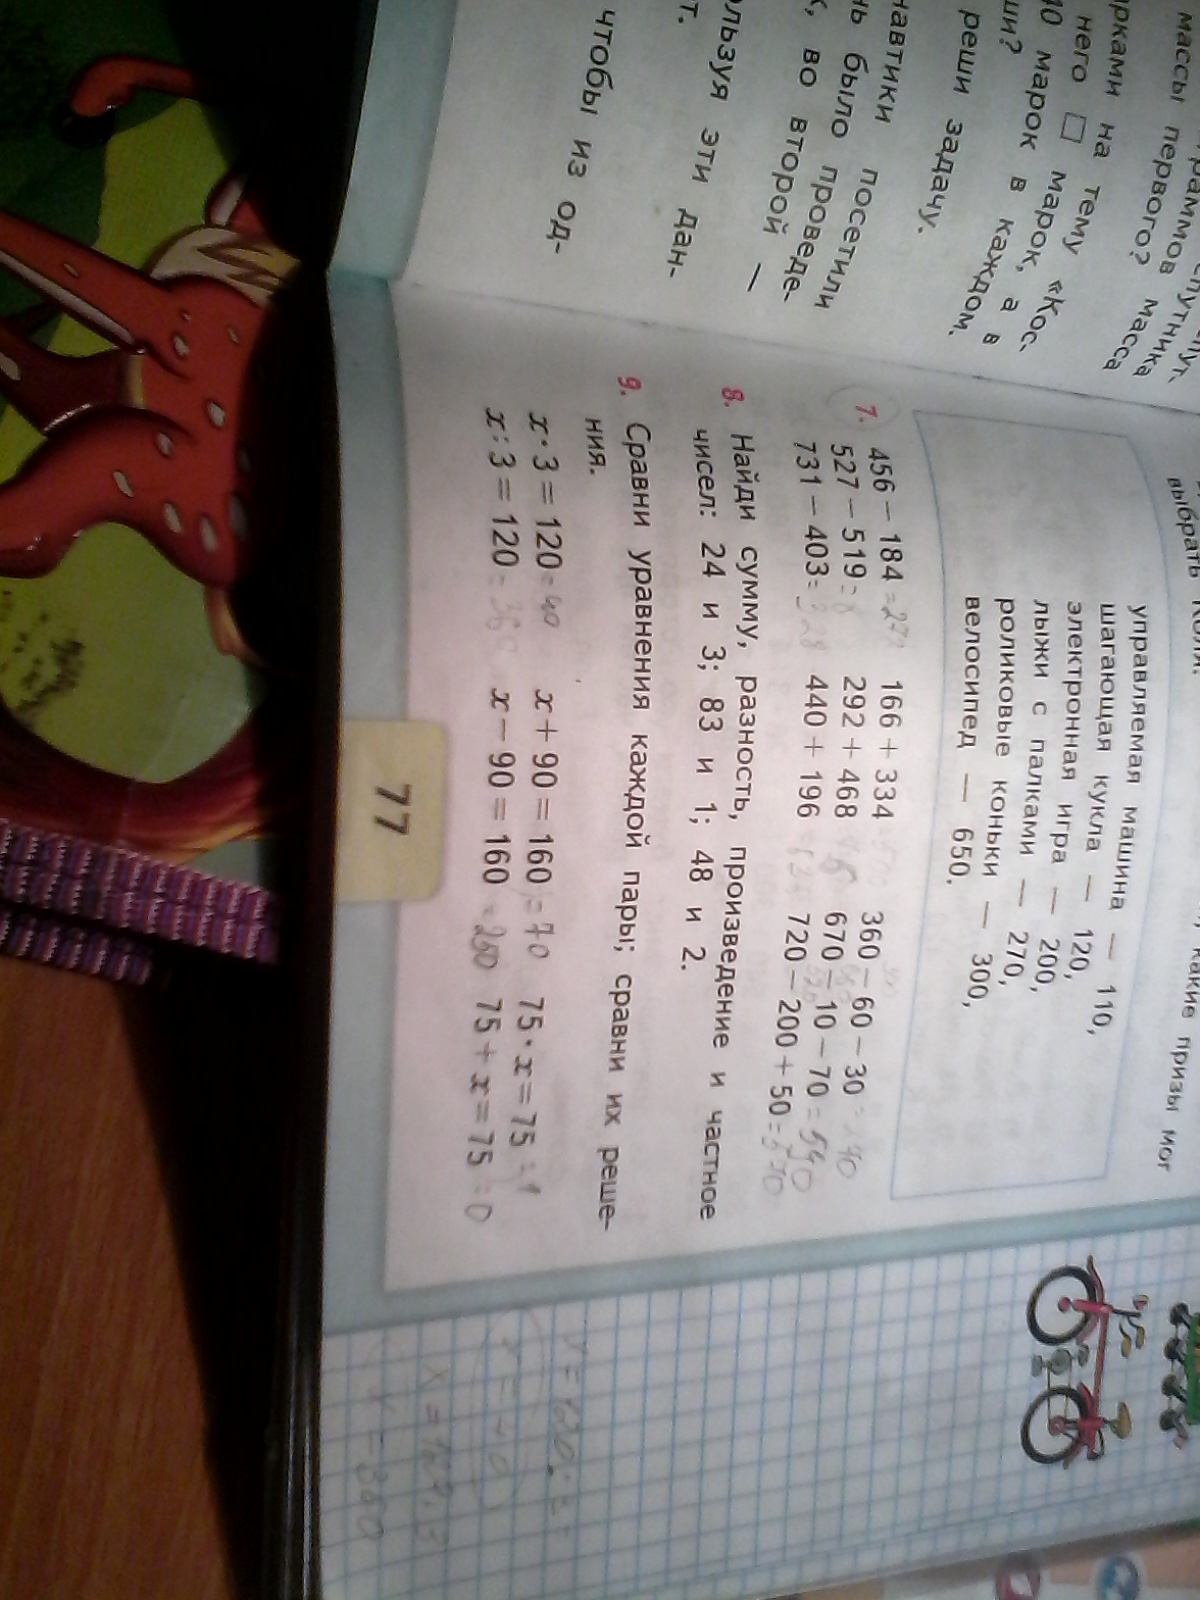 массы первого? масса
него □ марок, а в
10 марок в каждом.
ши?
реши задачу.
посетили
было проведе-
во второй —
эти дан-
чтобы из од-
выбрать Коля.
какие призы мог
управляемая машина — 110,
шагающая кукла — 120,
электронная игра — 200,
лыжи с палками — 270,
роликовые коньки — 300,
велосипед — 650.
7. 456 − 184 = 272 166 + 334 360 − 60 − 30 =
527 − 519 = 8 292 + 468 670 − 10 − 70 = 590
731 − 403 = 328 440 + 196 720 − 200 + 50 = 570
8. Найди сумму, разность, произведение и частное
чисел: 24 и 3; 83 и 1; 48 и 2.
9. Сравни уравнения каждой пары; сравни их реше-
ния.
x · 3 = 120 = 40 x + 90 = 160 = 70 75 · x = 75 = 1
x : 3 = 120 = 360 x − 90 = 160 = 250 75 + x = 75 = 0
77